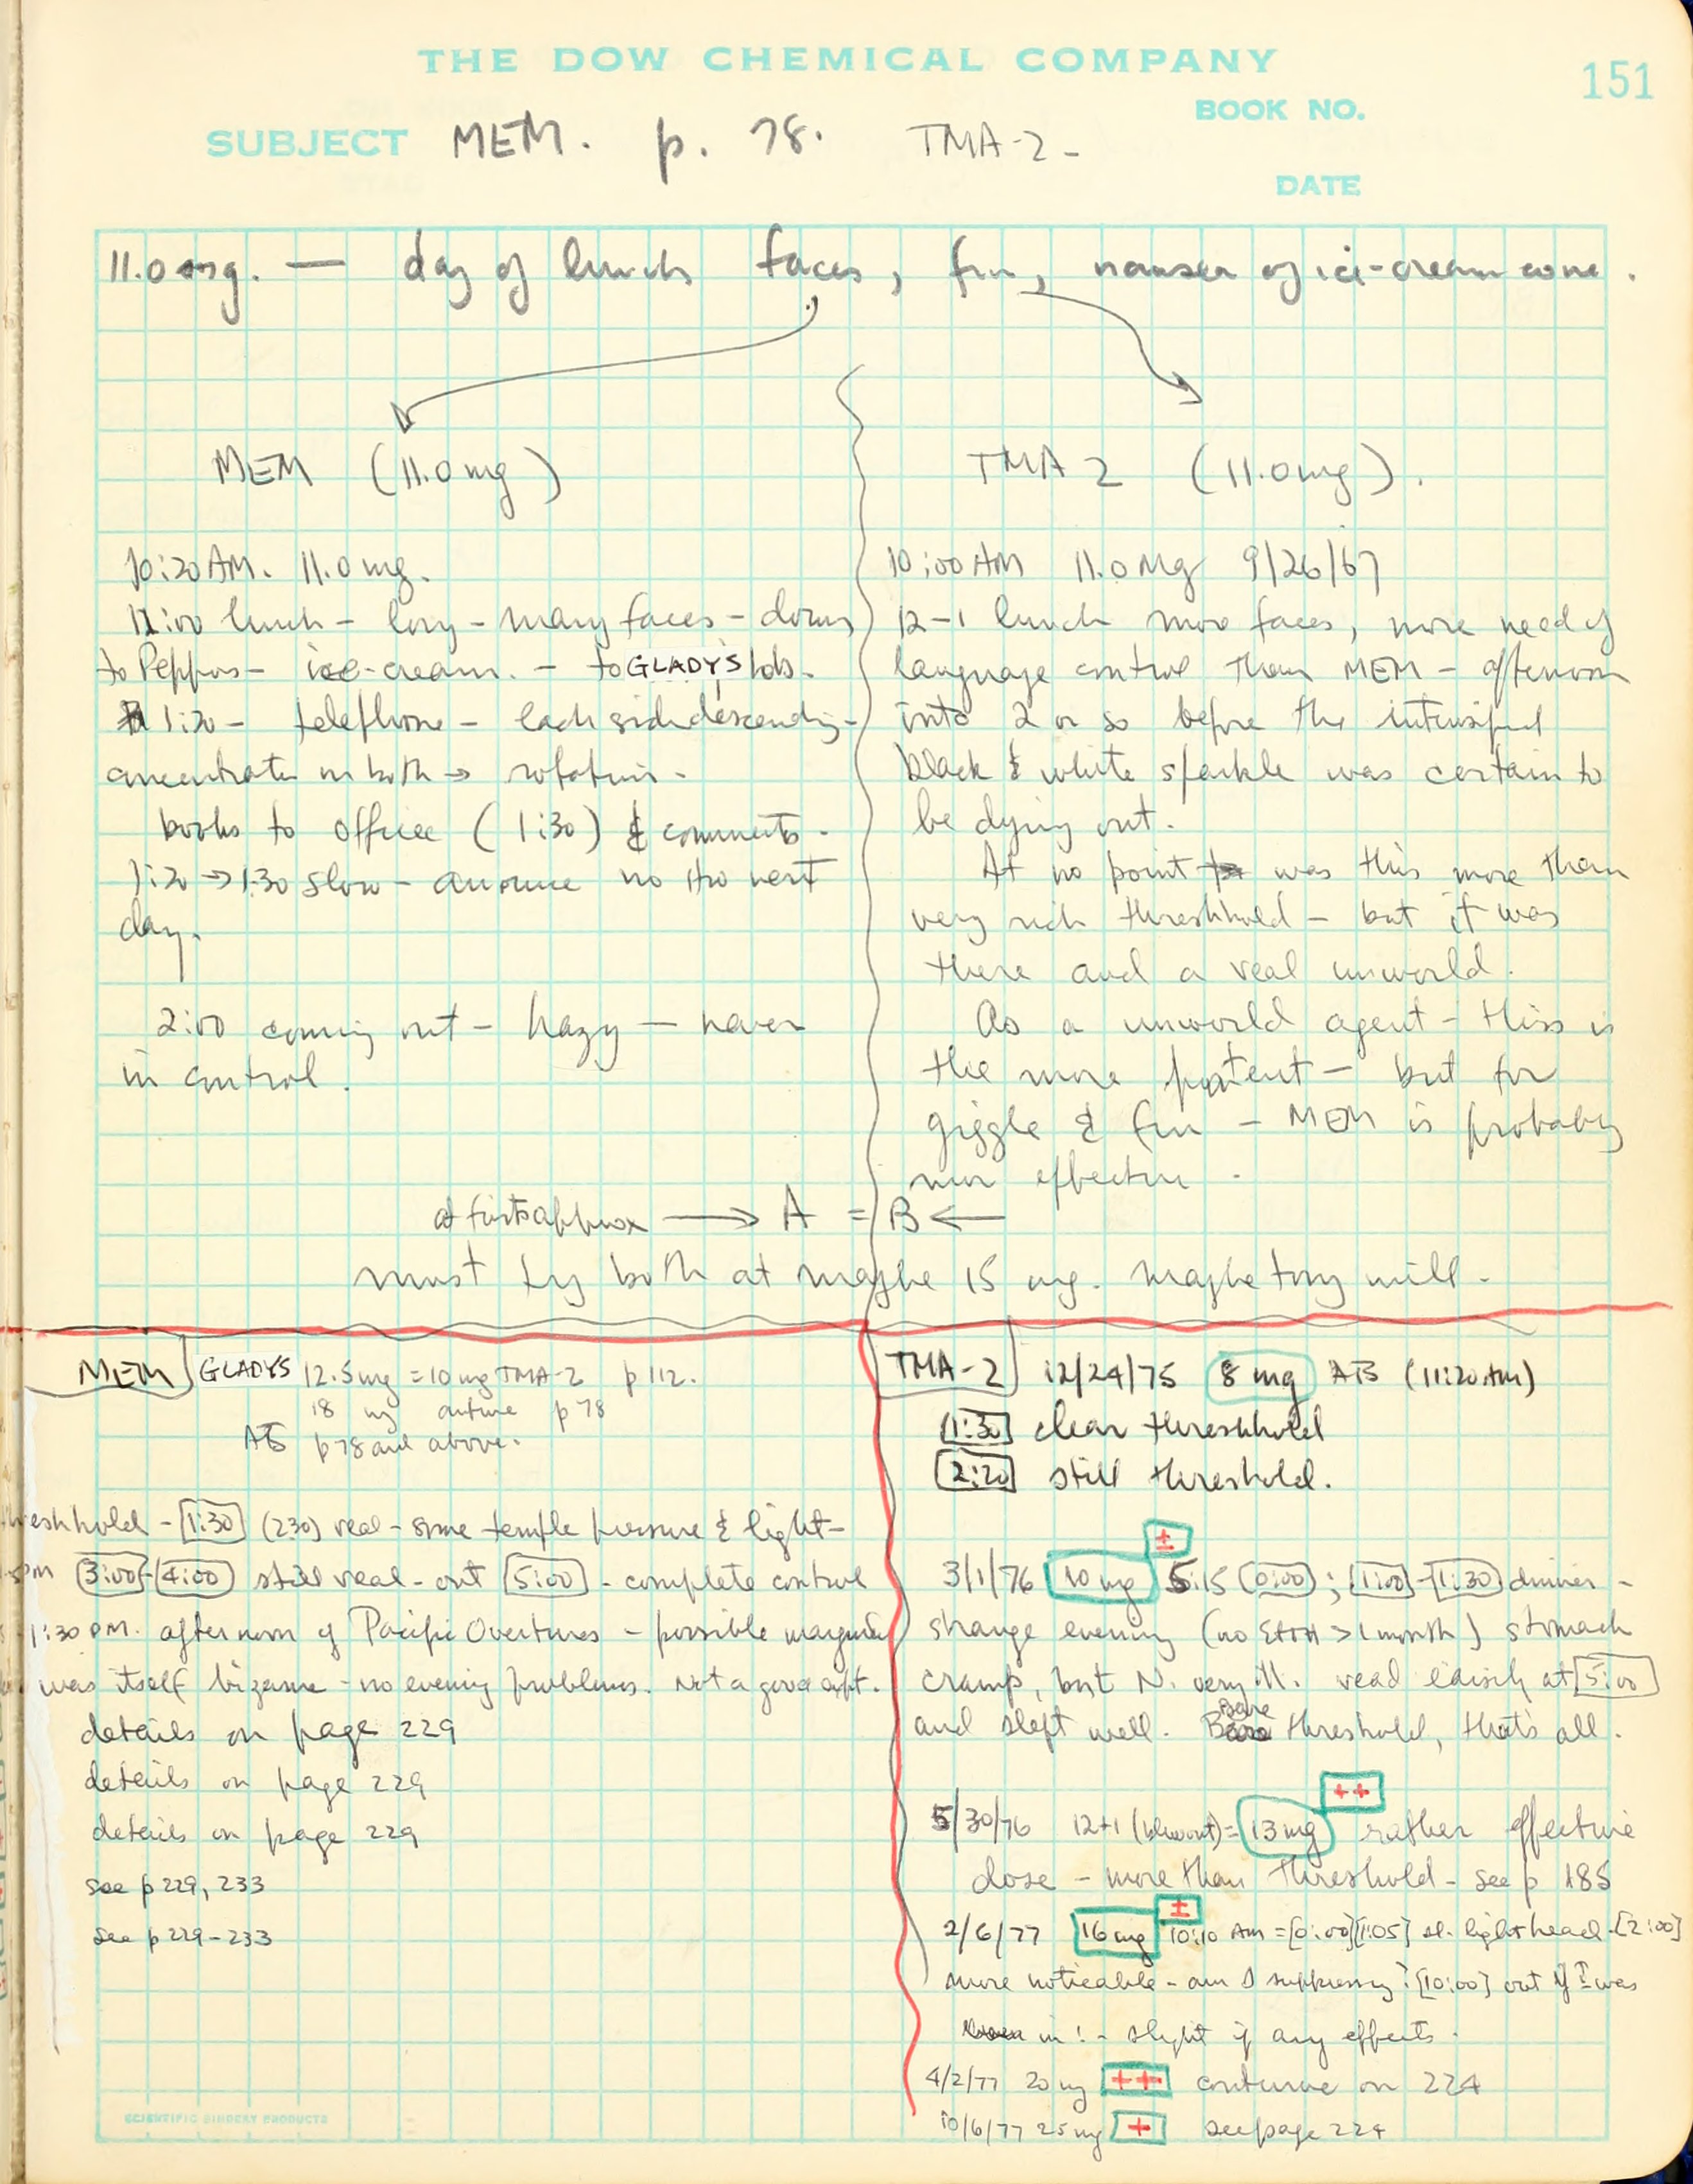 THE DOW CHEMICAL COMPANY
151
BOOK NO.
SUBJECT MEM. p. 78. TMA-2-
DATE
11.0 mg. — day of lunch faces, fun, nausea of ice-cream cone.
MEM (11.0 mg)
10:20 AM. 11.0 mg.
11:00 lunch - long - many faces - down
to Peppos - ice-cream. - to GLADYS lab.
1:20 - telephone - each side descending -
concentrate on both → rotation.
books to office (1:30) & comments.
1:20 → 1:30 slow - announce no tho next
day.
2:00 coming out - hazy - never
in control.
TMA 2 (11.0 mg).
10:00 AM 11.0 Mg 9/26/67
12-1 lunch more faces, more need of
language control than MEM - afternoon
into 2 or so before the intensified
black & white sparkle was certain to
be dying out.
At no point was this more than
very rich threshhold - but it was
there and a real unworld.
As a unworld agent - this is
the more potent - but for
giggle & fun - MEM is probably
more effective.
at first approx → A = B ←
must try both at maybe 15 mg. maybe tony will.
MEM GLADYS 12.5 mg = 10 mg TMA-2 p 112.
18 mg p 78
ATS p 78 and above.
threshhold - [1:30] (230) real - some temple pressure & light-
pm [3:00]-[4:00] still real - out [5:00] - complete control
1:30 PM. afternoon of Pacific Overtures - possible
was itself bizarre - no evening problems. Not a good expt.
details on page 229
details on page 229
details on page 229
see p 229, 233
see p 229-233
TMA-2 12/24/75 8 mg ATS (11:20 AM)
[1:30] clear threshhold
[2:20] still threshold.
±
3/1/76 10 mg 5:15 [0:00]; [1:00]-[1:30] dinner -
strange evening (no EtOH > 1 month) stomach
cramp, but N. very ill. read easily at [5:00]
and slept well. Bare threshold, that's all.
++
5/30/76 12+1 (blowout) = 13 mg rather effective
dose - more than threshold - see p 185
±
2/6/77 16 mg 10:10 AM = [0:00] [1:05] sl. lighthead - [2:00]
more noticeable - am I suppressing? [10:00] out if I was
in! - slight if any effects.
4/2/77 20 mg ++ continue on 224
10/6/77 25 mg + see page 224
SCIENTIFIC BINDERY PRODUCTS